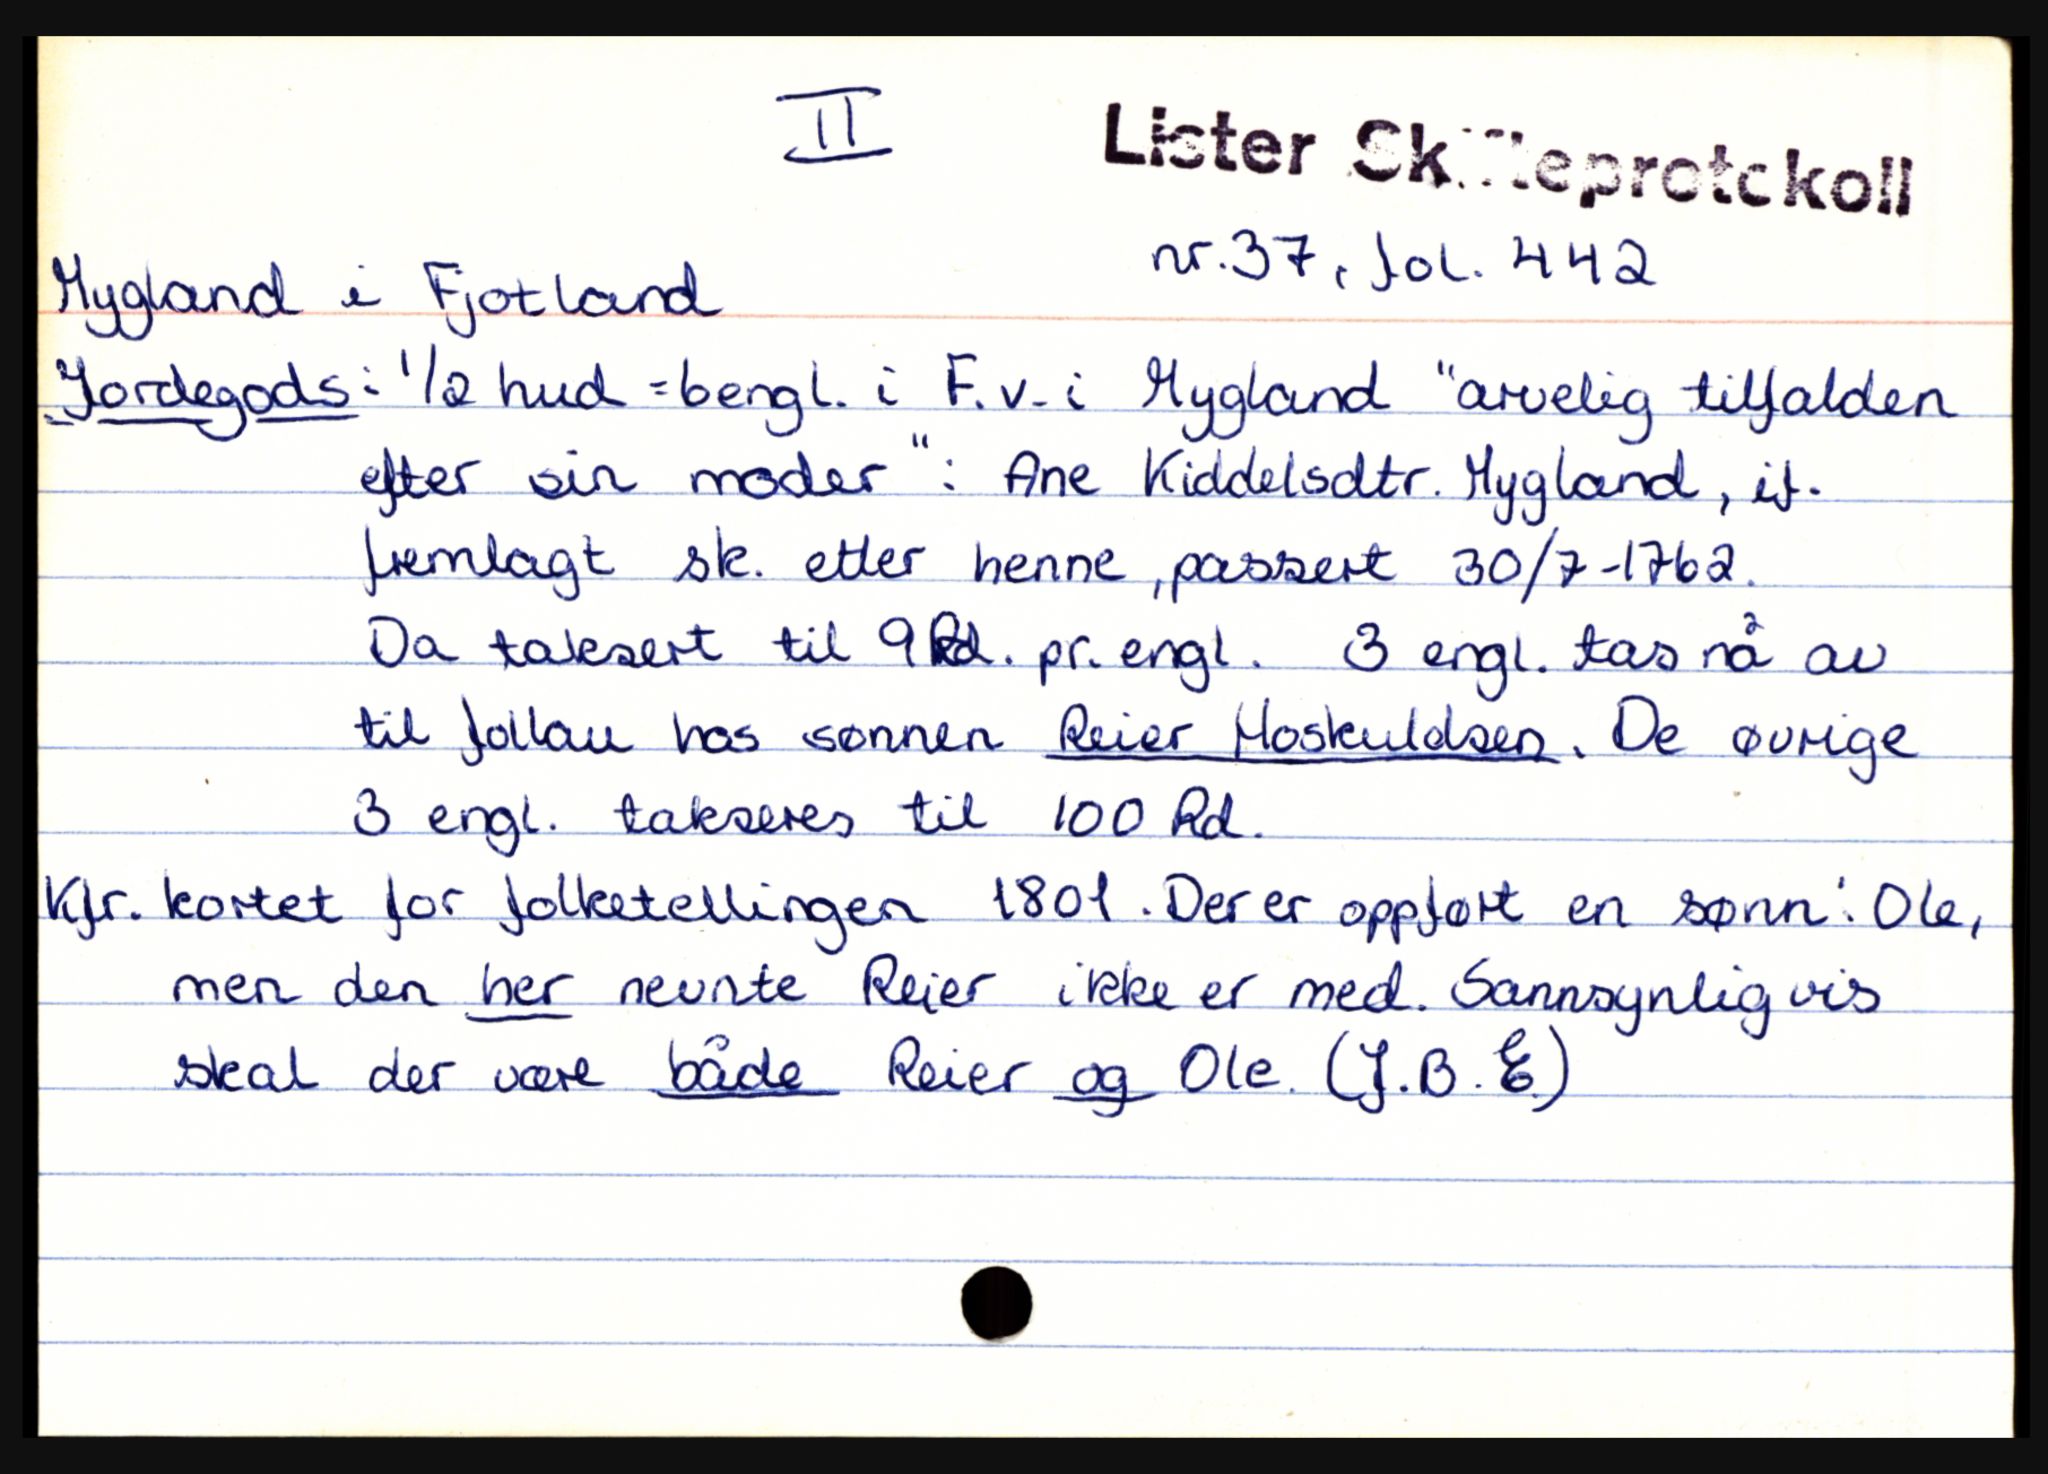 II
Lister Skifteprotokoll
nr. 37, fol. 442
Mygland i Fjotland
Jordegods: 1/2 hud = bengl. i F.v. i Mygland "arvelig tilfalden
efter sin moder": Ane Kiddelsdtr. Mygland, if.
fremlagt sk. etter henne, passert 30/7-1762.
Da taksert til 9 Rd. pr. engl. 3 engl. tas nå av
til follau hos sønnen Reier Hoskuldsen. De øvrige
3 engl. takseres til 100 Rd.
Kfr. kortet for folketellingen 1801. Der er oppført en sønn: Ole,
men den her nevnte Reier ikke er med. Sannsynligvis
skal der være både Reier og Ole. (J.B.E.)